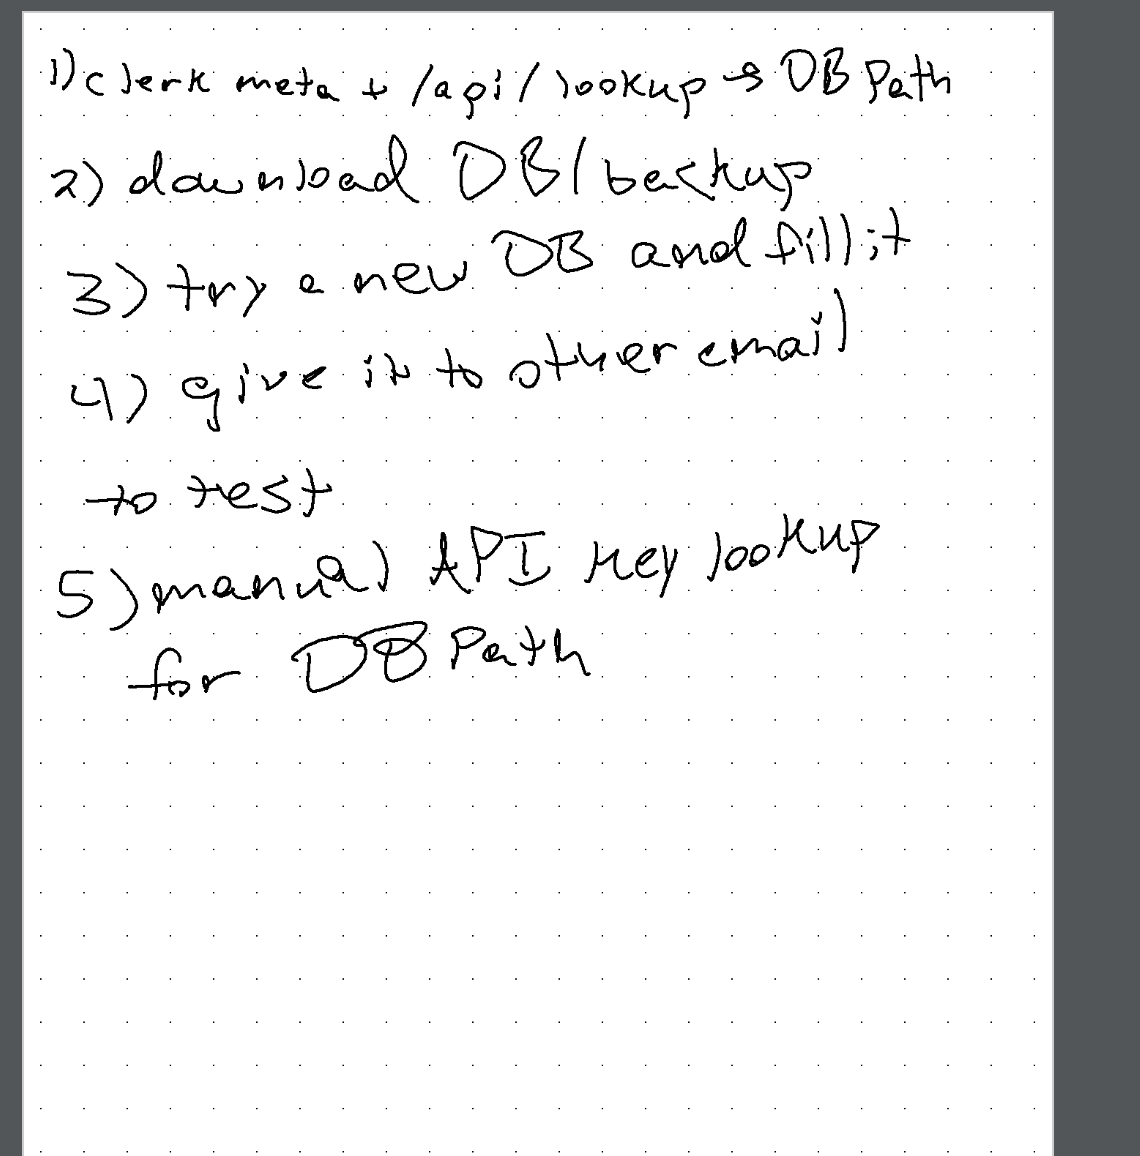 1) clerk meta + /api/lookup → DB Path
2) download DB/backup
3) try a new DB and fill it
4) give it to other email
to test
5) manual API key lookup
for DB Path